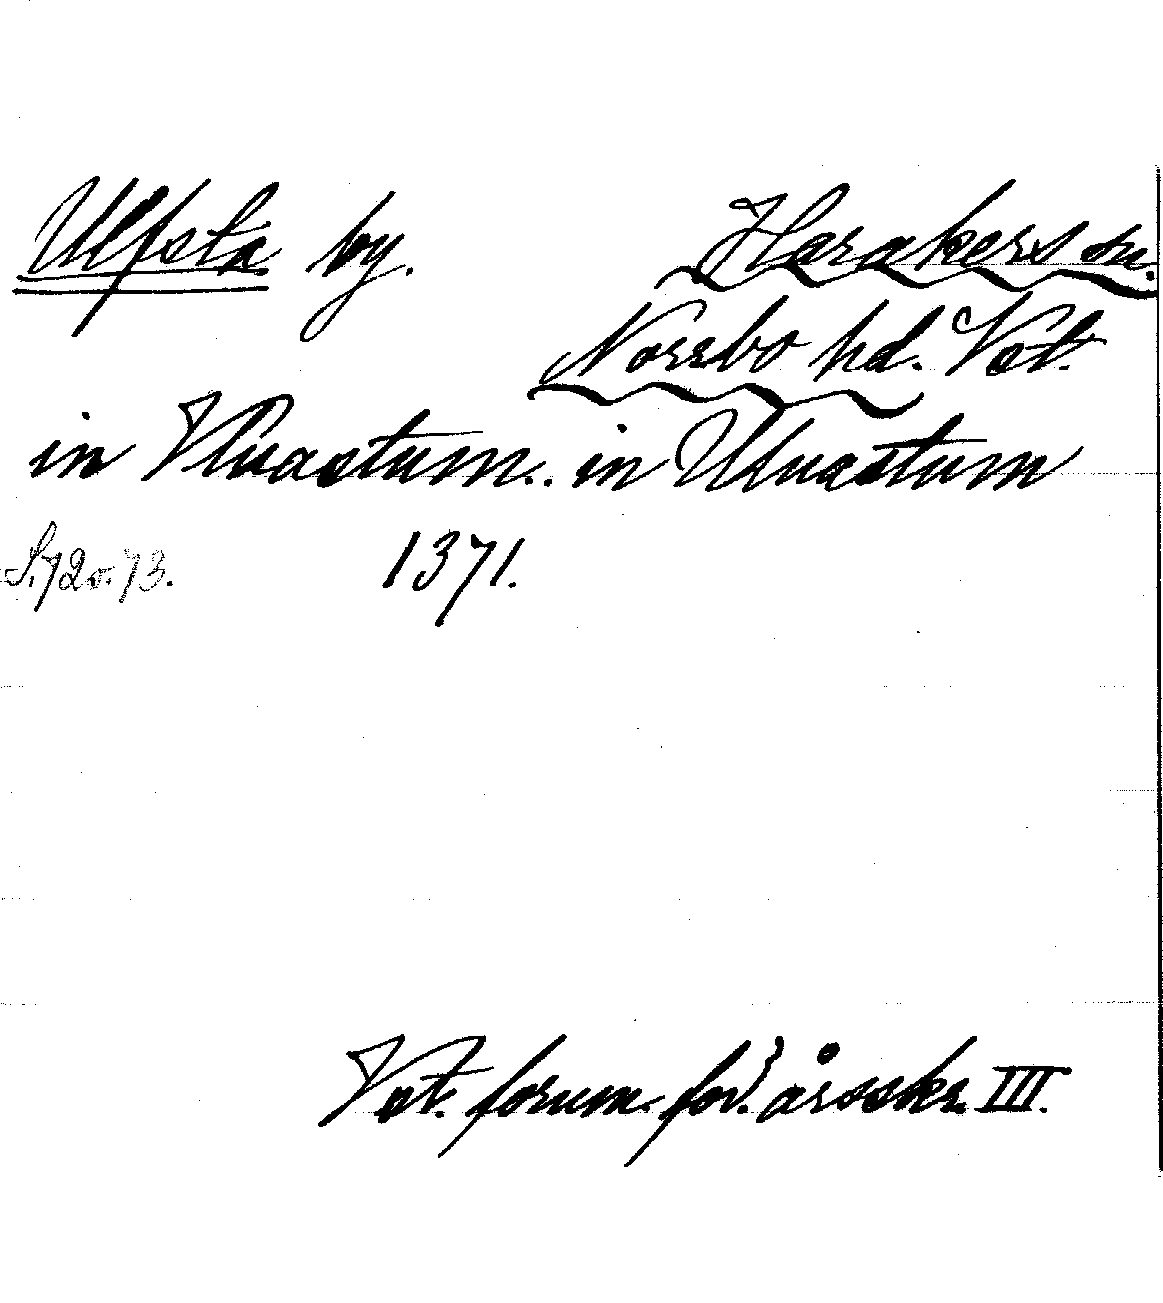 Ulfsta by. Harakers sn.
Norrbo hd. Vst.
in Vluastum.. in Uluastum
S. 72 o. 73. 1371.
Vst. fornm. för:s årsskr. III.